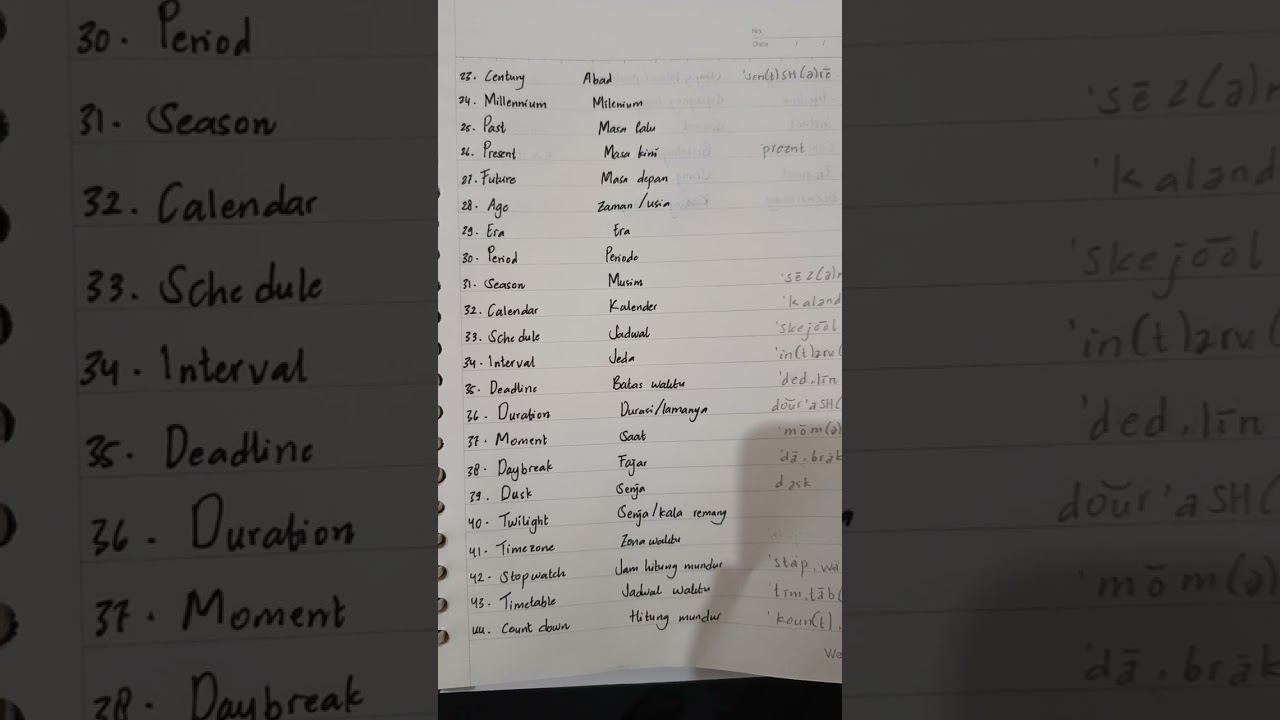 No.
Date / /
23. Century Abad 'sen(t)SH(ə)rē
24. Millennium Milenium
25. Past Masa lalu
26. Present Masa kini 'preznt
27. Future Masa depan
28. Age Zaman/usia
29. Era Era
30. Period Periode
31. Season Musim 'sēz(ə)n
32. Calendar Kalender 'kaland
33. Schedule Jadwal 'skejo͞ol
34. Interval Jeda 'in(t)ərv(
35. Deadline Batas waktu 'ded,līn
36. Duration Durasi/lamanya do͝or'aSH(
37. Moment Saat 'mōm(ə)
38. Daybreak Fajar 'dā,brāk
39. Dusk Senja dəsk
40. Twilight Senja/kala remang
41. Timezone Zona waktu
42. Stopwatch Jam hitung mundur 'stäp,wä
43. Timetable Jadwal waktu 'tīm,tāb(
44. Count down Hitung mundur 'koun(t),
We
30. Period
31. Season
32. Calendar
33. Schedule
34. Interval
35. Deadline
36. Duration
37. Moment
38. Daybreak
'sēz(ə)n
'kaland
'skejo͞ol
'in(t)ərv(
'ded,līn
do͝or'aSH(
'mōm(ə)
'dā,brāk